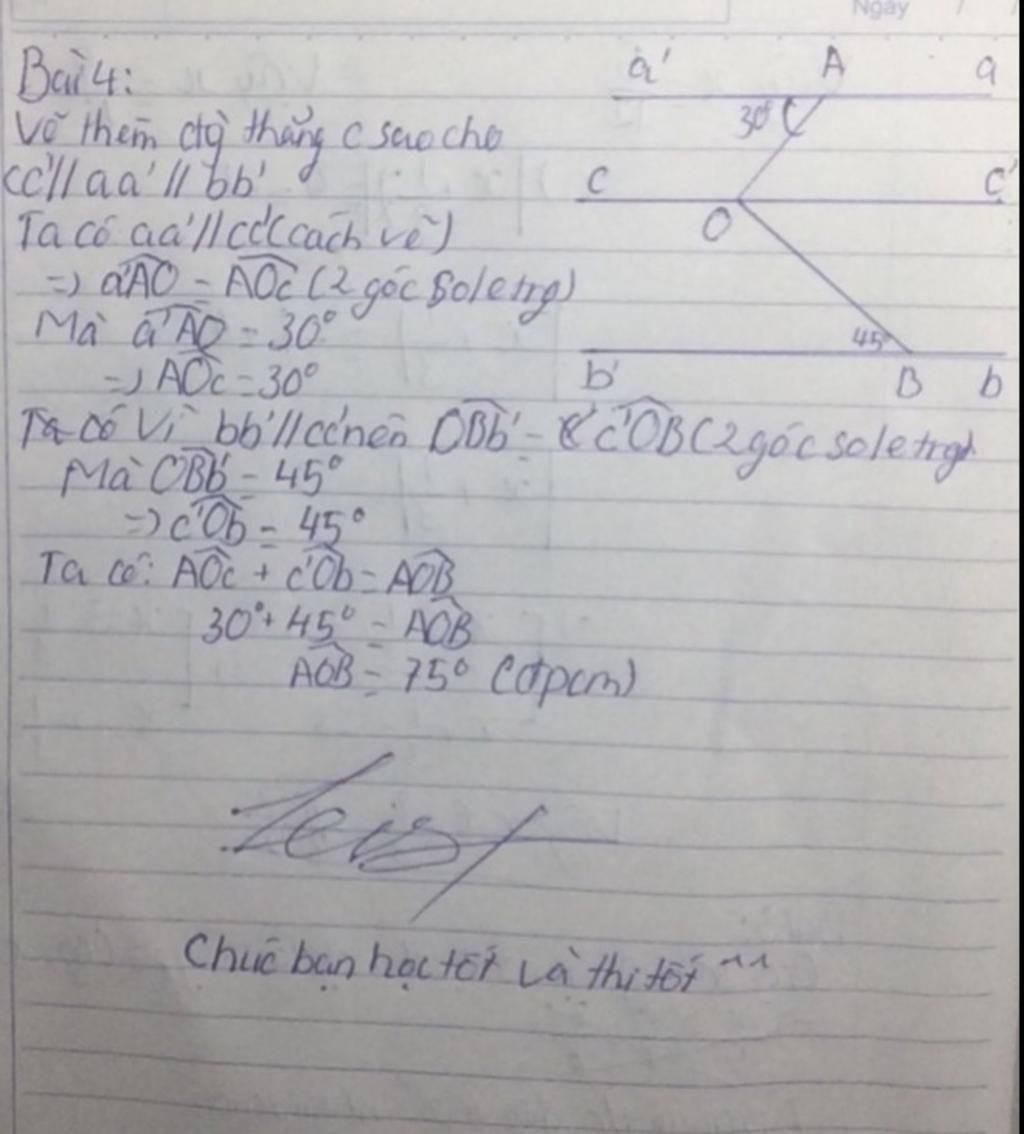 Ngày / /
Bài 4:
Vẽ thêm đtg thẳng c sao cho
cc'//aa'//bb'
Ta có aa'//cc'(cách vẽ)
=> a'AO = AOc (2 góc soletrg)
Mà a'AO = 30°
=> AOc = 30°
Ta có Vì bb'//cc' nên OBb' = c'OB (2 góc soletrg)
Mà OBb' = 45°
=> c'Ob = 45°
Ta có: AOc + c'Ob = AOB
30° + 45° = AOB
AOB = 75° (đpcm)
a' A a
30°
c c'
O
45°
b' B b
Chúc bạn học tốt và thi tốt ^^